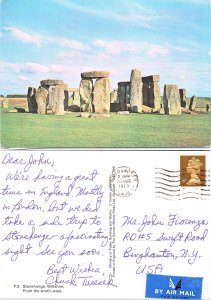 Dear John,
We're having a great
time in England. Mostly
in London, but we did
take a side trip to
Stonehenge - a fascinating
sight. See you soon.
Best Wishes,
Chuck
P.S. Stonehenge, Wiltshire.
From the south-west.
1973
Mr. John Fiorenza
RD#5 Swift Road
Binghamton, N.Y.
USA
BY AIR MAIL